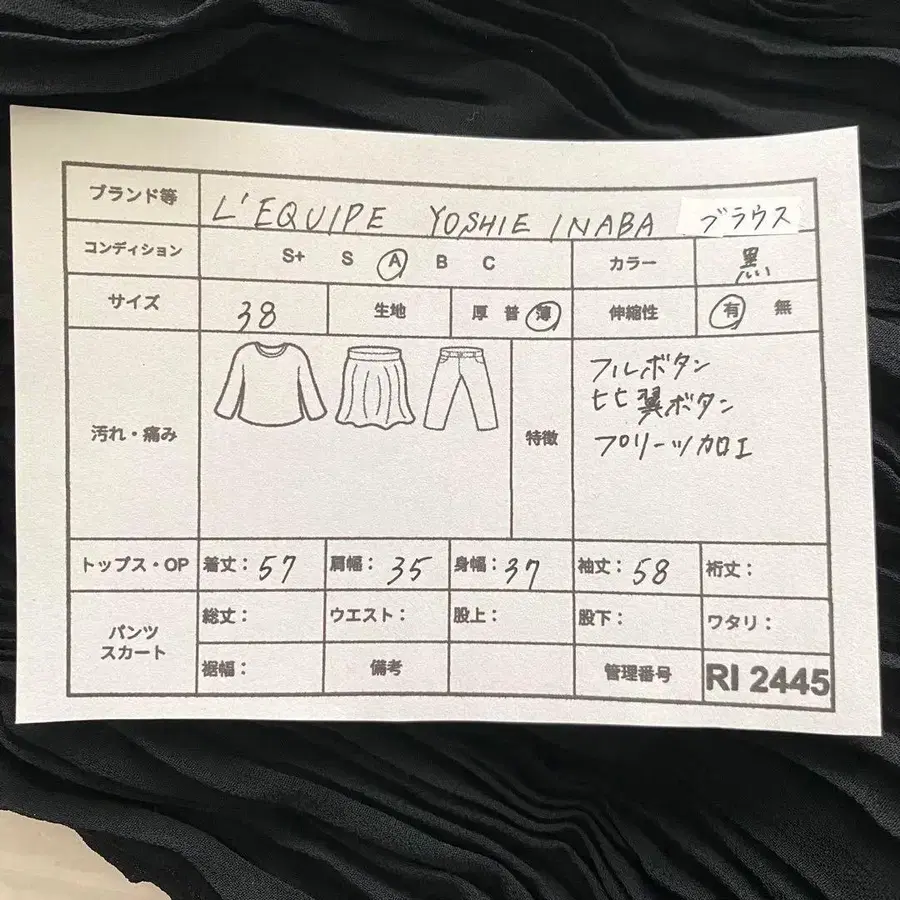 ブランド等 L'EQUIPE YOSHIE INABA ブラウス
コンディション S+ S A B C カラー 黒
サイズ 38 生地 厚 普 薄 伸縮性 有 無
汚れ・痛み 特徴
フルボタン
比翼ボタン
プリーツ加工
トップス・OP 着丈：57 肩幅：35 身幅：37 袖丈：58 裄丈：
パンツ
スカート
総丈： ウエスト： 股上： 股下： ワタリ：
裾幅： 備考 管理番号 RI 2445